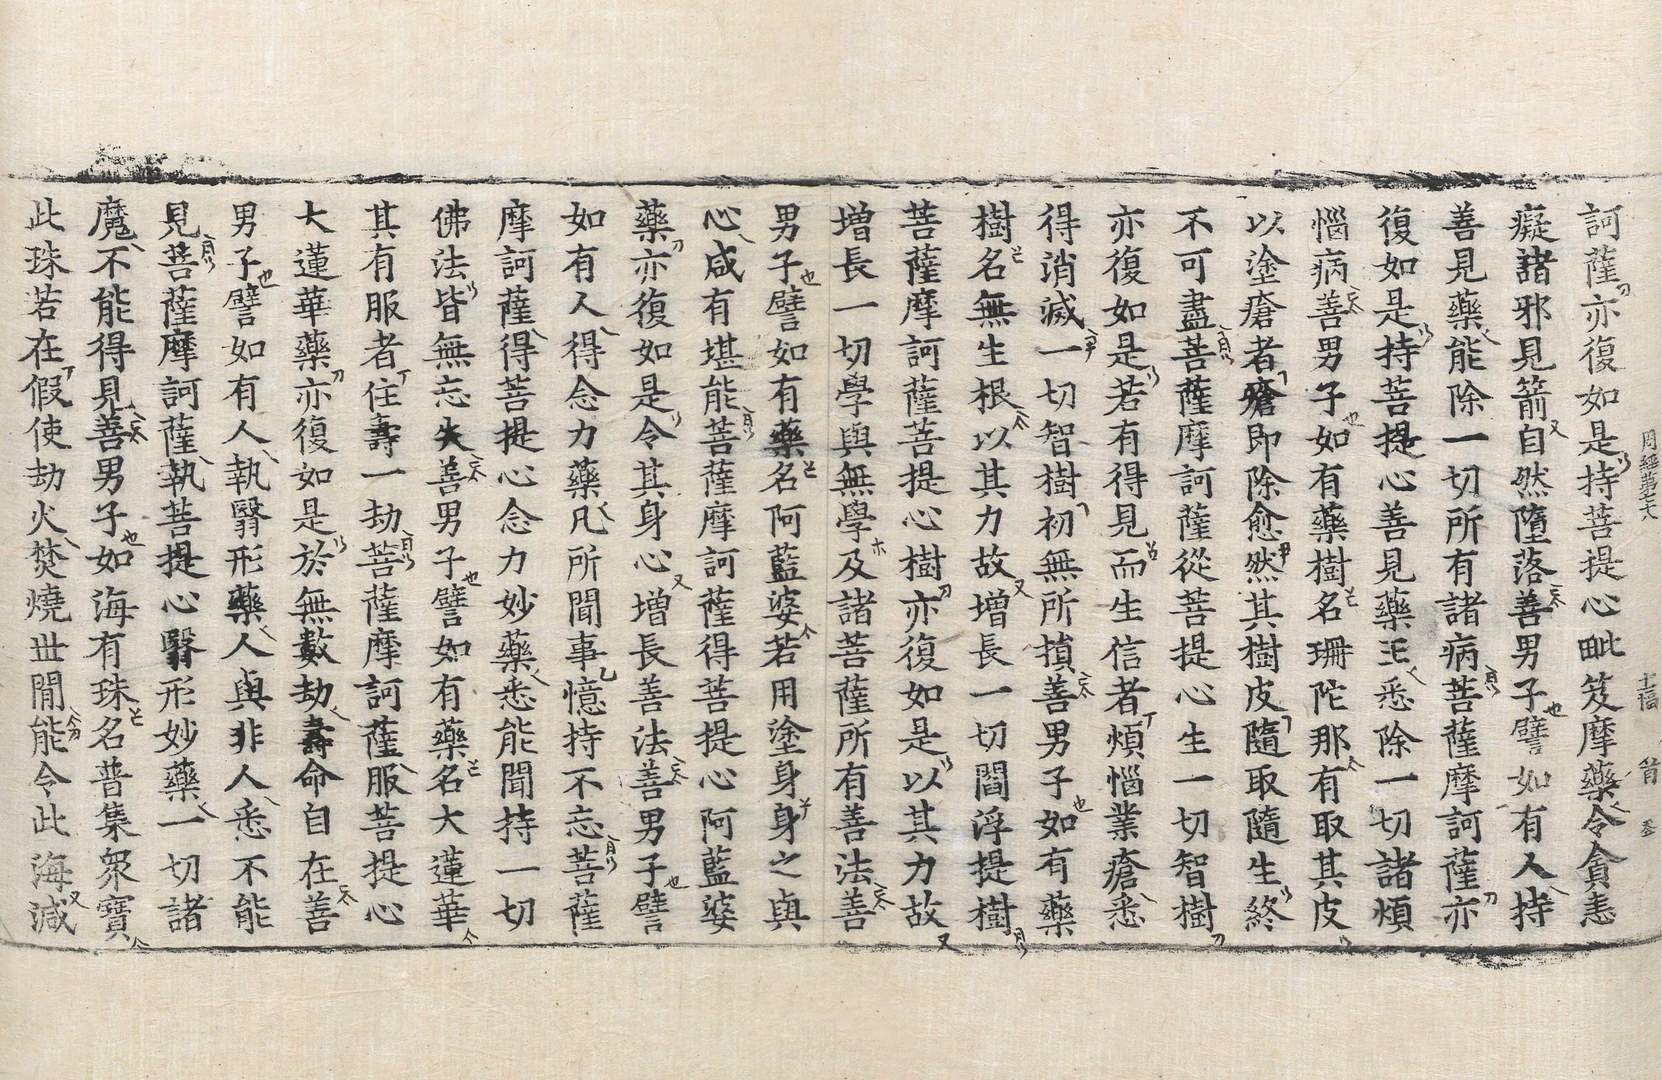 訶薩亦復如是持菩提心毗笈摩藥令貪恚
癡諸邪見箭自然墮落善男子譬如有人持
善見藥能除一切所有諸病菩薩摩訶薩亦
復如是持菩提心善見藥王悉除一切諸煩
惱病善男子如有藥樹名珊陀那有取其皮
以塗瘡者瘡即除愈然其樹皮隨取隨生終
不可盡菩薩摩訶薩從菩提心生一切智樹
亦復如是若有得見而生信者煩惱業瘡悉
得消滅一切智樹初無所損善男子如有藥
樹名無生根以其力故增長一切閻浮提樹
菩薩摩訶薩菩提心樹亦復如是以其力故
增長一切學與無學及諸菩薩所有善法善
男子譬如有藥名阿藍婆若用塗身身之與
心咸有堪能菩薩摩訶薩得菩提心阿藍婆
藥亦復如是令其身心增長善法善男子譬
如有人得念力藥凡所聞事憶持不忘菩薩
摩訶薩得菩提心念力妙藥悉能聞持一切
佛法皆無忘失善男子譬如有藥名大蓮華
其有服者住壽一劫菩薩摩訶薩服菩提心
大蓮華藥亦復如是於無數劫壽命自在善
男子譬如有人執翳形藥人與非人悉不能
見菩薩摩訶薩執菩提心翳形妙藥一切諸
魔不能得見善男子如海有珠名普集衆寶
此珠若在假使劫火焚燒世間能令此海減